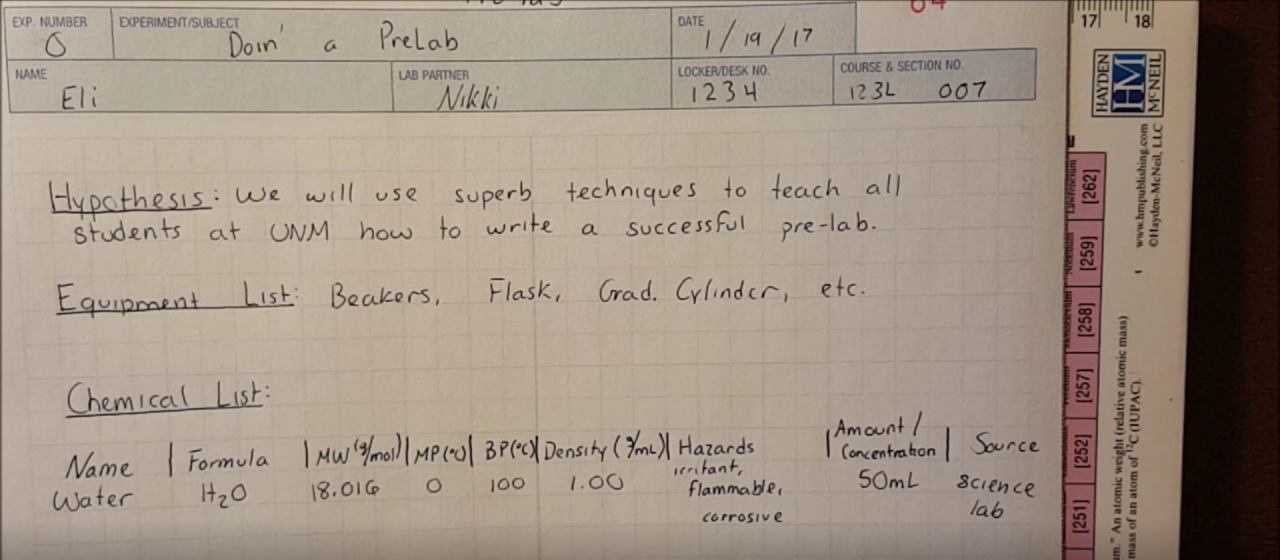 EXP. NUMBER EXPERIMENT/SUBJECT DATE
0 Doin' a PreLab 1/19/17
NAME LAB PARTNER LOCKER/DESK NO. COURSE & SECTION NO.
Eli Nikki 1234 123L 007
Hypothesis: We will use superb techniques to teach all
students at UNM how to write a successful pre-lab.
Equipment List: Beakers, Flask, Grad. Cylinder, etc.
Chemical List:
Name | Formula | MW (g/mol) | MP (°C) | BP (°C) | Density (g/mL) | Hazards | Amount / Concentration | Source
Water H₂O 18.016 0 100 1.00 irritant, flammable, corrosive 50mL science lab
17 18
HAYDEN
HM
McNEIL
www.hmpublishing.com
©Hayden-McNeil, LLC
[262]
[259]
[258]
[257]
[252]
[251]
m." An atomic weight (relative atomic mass)
mass of an atom of ¹²C (IUPAC).